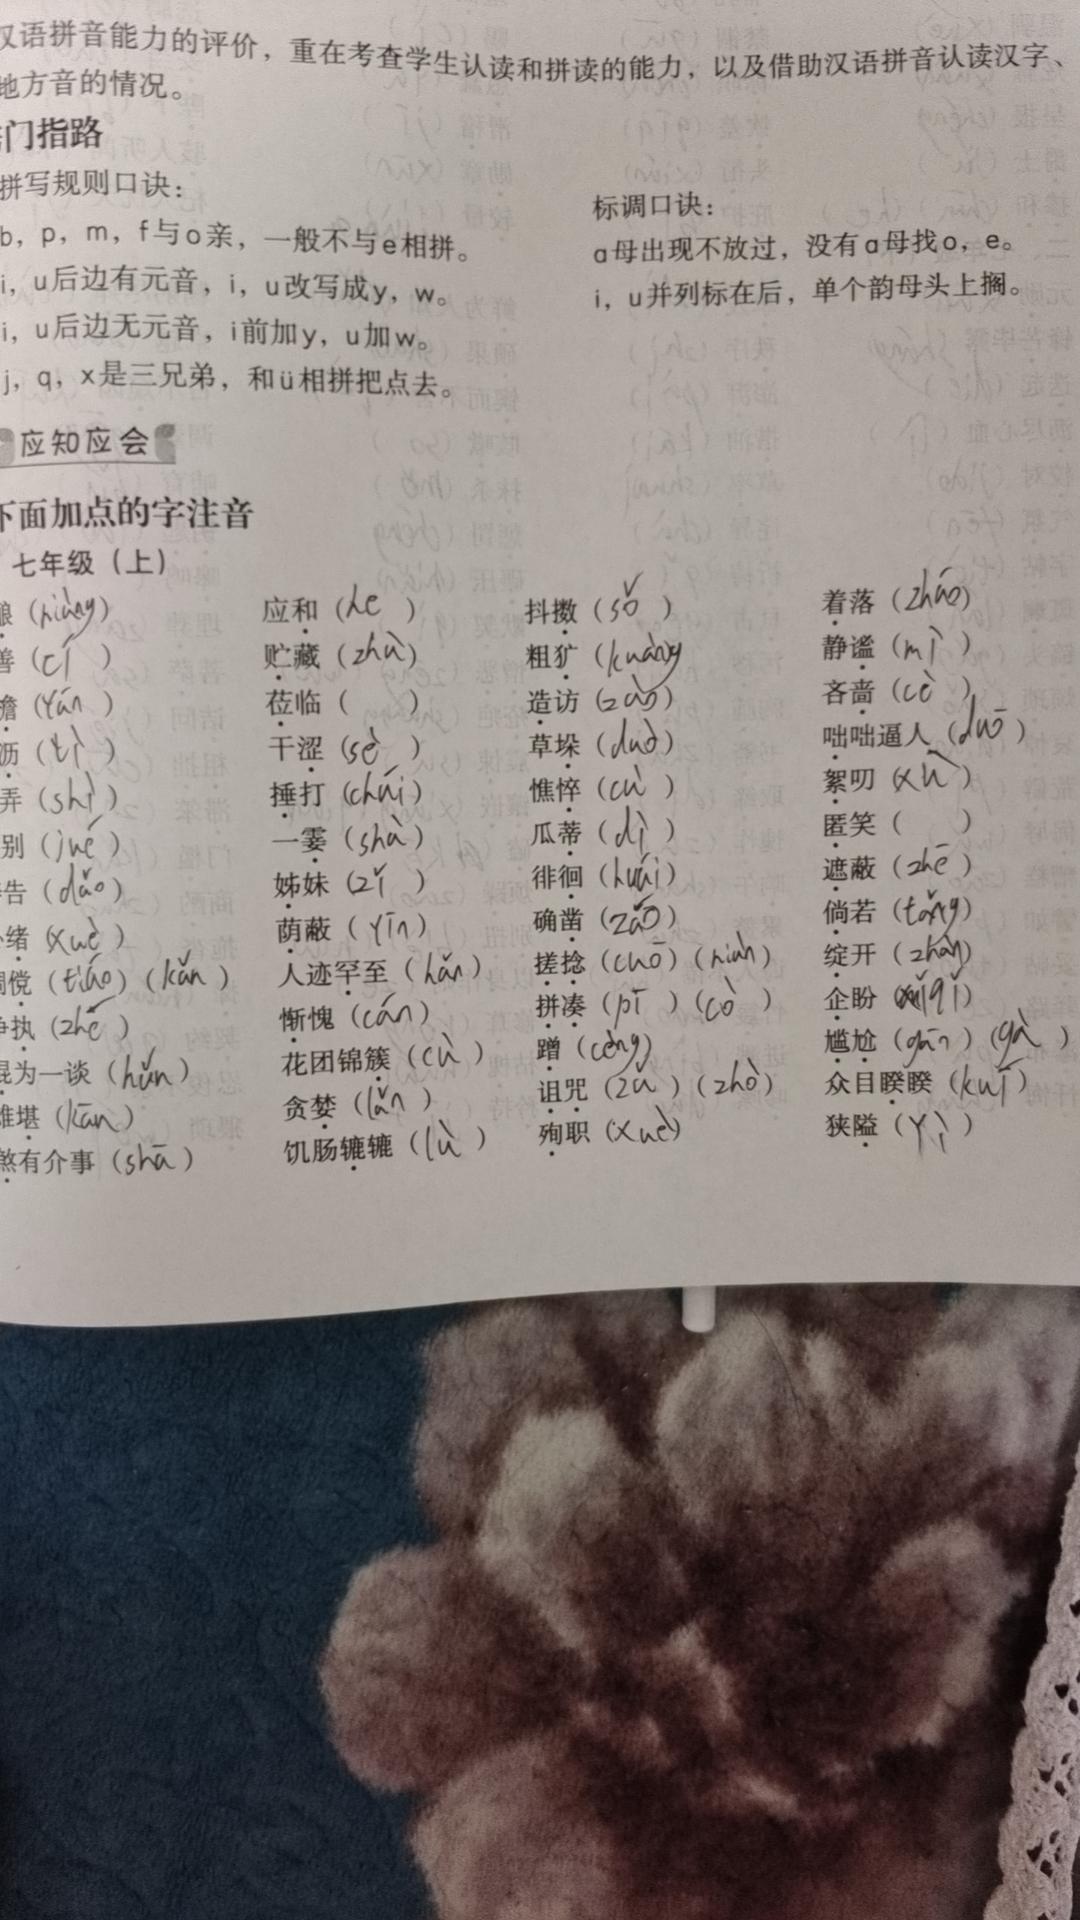 汉语拼音能力的评价，重在考查学生认读和拼读的能力，以及借助汉语拼音认读汉字、
地方音的情况。
门指路
拼写规则口诀：
b，p，m，f与o亲，一般不与e相拼。
i，u后边有元音，i，u改写成y，w。
i，u后边无元音，i前加y，u加w。
j，q，x是三兄弟，和ü相拼把点去。
标调口诀：
a母出现不放过，没有a母找o，e。
i，u并列标在后，单个韵母头上搁。
应知应会
下面加点的字注音
七年级（上）
酿（niàng） 应和（hè） 抖擞（sǒ） 着落（zháo）
善（cí） 贮藏（zhù） 粗犷（kuàng） 静谧（mì）
（yán） 莅临（ ） 造访（zào） 吝啬（cè）
沥（lì） 干涩（sè） 草垛（duò） 咄咄逼人（duō）
弄（shì） 捶打（chúi） 憔悴（cù） 絮叨（xù）
别（jué） 一霎（shà） 瓜蒂（dì） 匿笑（ ）
告（dǎo） 姊妹（zǐ） 徘徊（huái） 遮蔽（zhē）
绪（xuè） 荫蔽（yīn） 确凿（záo） 倘若（tǎng）
倜傥（tiáo）（kǎn） 人迹罕至（hǎn） 搓捻（cuō）（niàn） 绽开（zhàn）
争执（zhé） 惭愧（cán） 拼凑（pī）（cò） 企盼（qǐ）
混为一谈（hǔn） 花团锦簇（cù） 蹭（cèng） 尴尬（gān）（gà）
难堪（kān） 贪婪（lǎn） 诅咒（zǔ）（zhò） 众目睽睽（kuí）
煞有介事（shā） 饥肠辘辘（lù） 殉职（xuè） 狭隘（yì）